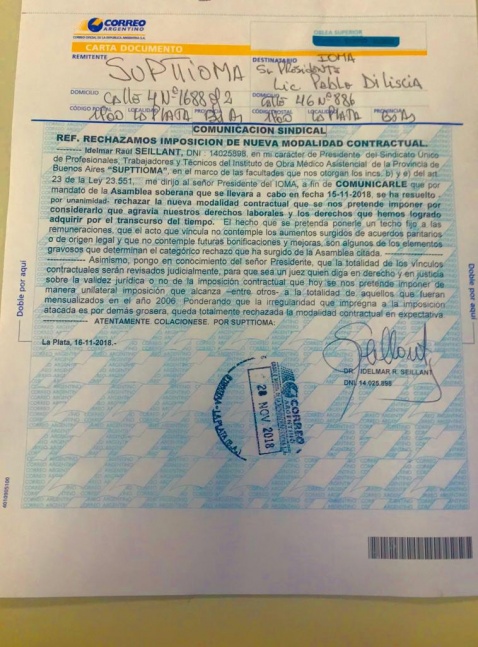 CORREO
ARGENTINO
CORREO OFICIAL DE LA REPUBLICA ARGENTINA S.A.
CARTA DOCUMENTO
REMITENTE
SUPTTIOMA
DOMICILIO
Calle 4 Nº 1688 
CÓDIGO POSTAL LOCALIDAD PROVINCIA
1900 La PLATA BsAs
DESTINATARIO IOMA
Sr Presidente
Lic Pablo Di Liscia
DOMICILIO
Calle 46 Nº 886
CÓDIGO POSTAL LOCALIDAD PROVINCIA
1900 La PLATA BsAs
COMUNICACION SINDICAL
REF. RECHAZAMOS IMPOSICION DE NUEVA MODALIDAD CONTRACTUAL.
---------- Idelmar Raúl SEILLANT, DNI : 14025898, en mi carácter de Presidente del Sindicato Único
de Profesionales, Trabajadores y Técnicos del Instituto de Obra Médico Asistencial de la Provincia de
Buenos Aires "SUPTTIOMA", en el marco de las facultades que nos otorgan los incs. b) y e) del art.
23 de la Ley 23.551, me dirijo al señor Presidente del IOMA, a fin de COMUNICARLE que por
mandato de la Asamblea soberana que se llevara a cabo en fecha 15-11-2018, se ha resuelto -
por unanimidad- rechazar la nueva modalidad contractual que se nos pretende imponer por
considerarlo que agravia nuestros derechos laborales y los derechos que hemos logrado
adquirir por el transcurso del tiempo. El hecho que se pretenda ponerle un techo fijo a las
remuneraciones, que el acto que vincula no contemple los aumentos surgidos de acuerdos paritarios
o de origen legal y que no contemple futuras bonificaciones y mejoras, son algunos de los elementos
gravosos que determinan el categórico rechazo que ha surgido de la Asamblea citada. ----------
---------- Asimismo, pongo en conocimiento del señor Presidente, que la totalidad de los vínculos
contractuales serán revisados judicialmente, para que sea un juez quien diga en derecho y en justicia
sobre la validez jurídica o no de la imposición contractual que hoy se nos pretende imponer de
manera unilateral imposición que alcanza –entre otros- a la totalidad de aquellos que fueran
mensualizados en el año 2006. Ponderando que la irregularidad que impregna a la imposición
atacada es por demás grosera, queda totalmente rechazada la modalidad contractual en expectativa
---------- ATENTAMENTE. COLACIONESE. POR SUPTTIOMA:
La Plata, 16-11-2018.-
Seillant
DR. IDELMAR R. SEILLANT
DNI. 14.025.898
28 NOV 2018
CORREO
ARGENTINO
Doble por aquí
Doble por aquí